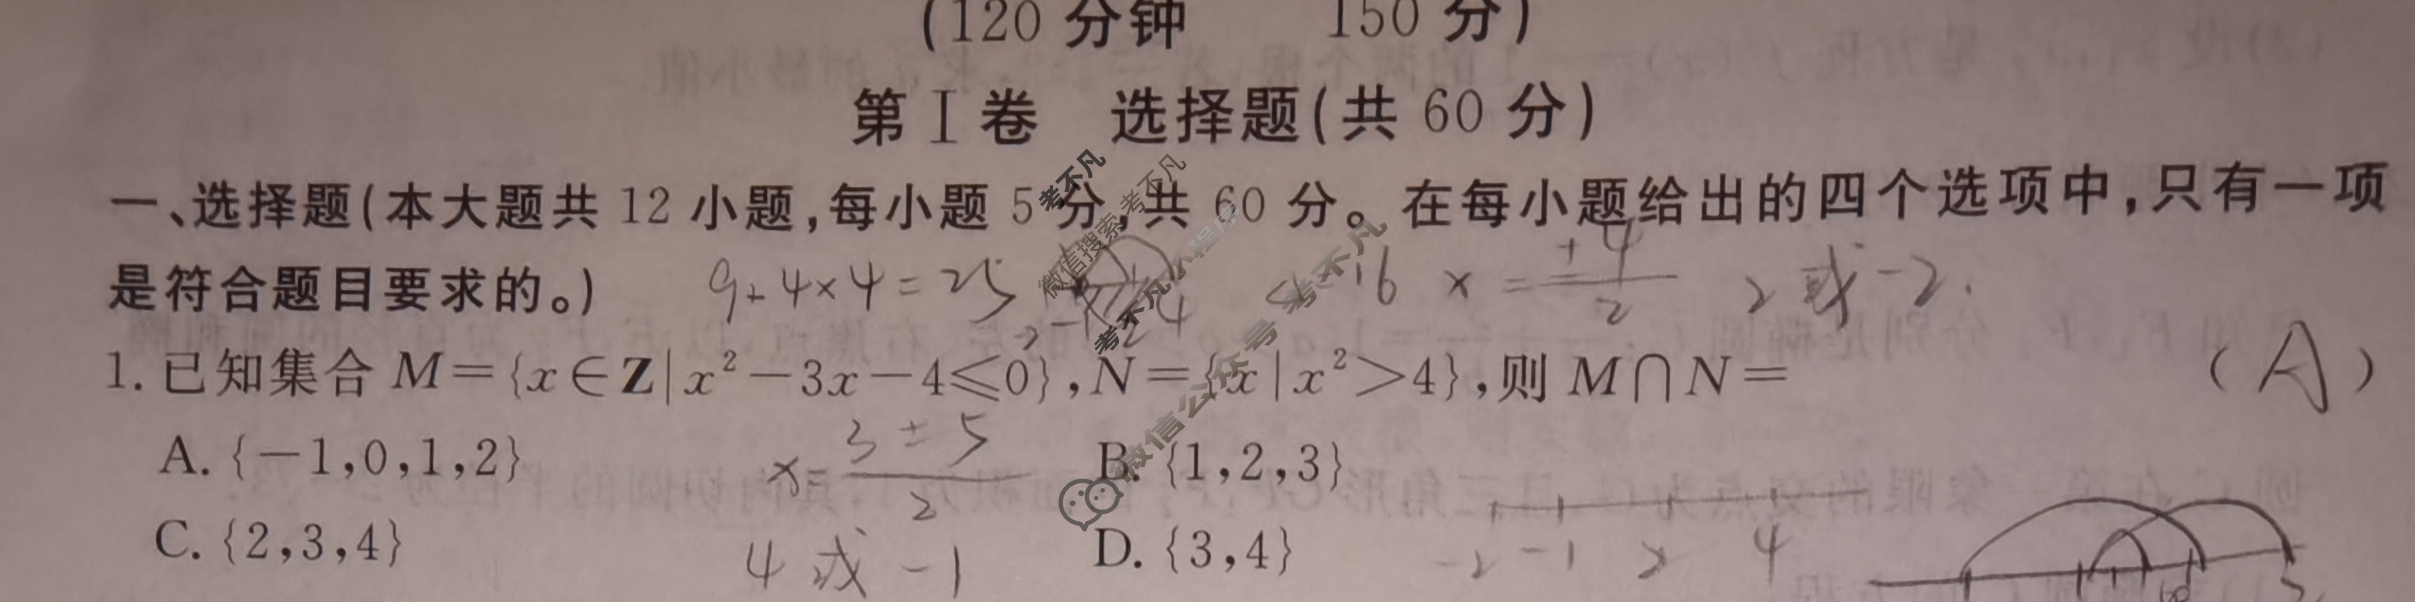 (120 分钟　150 分)
第 Ⅰ 卷　选择题(共 60 分)
一、选择题(本大题共 12 小题,每小题 5 分,共 60 分。在每小题给出的四个选项中,只有一项
是符合题目要求的。)
9+4×4=25
16 x=±4/2 2或-2.
1. 已知集合 M={x∈Z|x²-3x-4≤0},N={x|x²>4},则 M∩N= (A)
A. {-1,0,1,2}
x=3±5/2
B. {1,2,3}
C. {2,3,4}
4或-1
D. {3,4}
-2 -1 2 4
考不凡
微信搜索:考不凡
考不凡小程序
微信公众号 考不凡